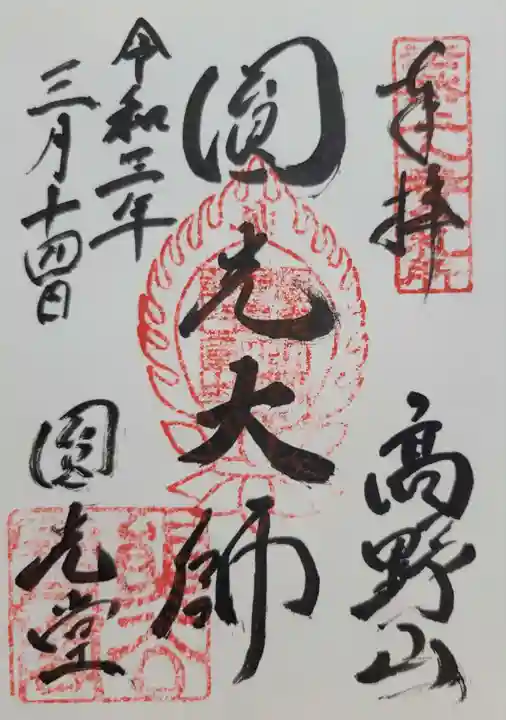 奉拝
高野山
圓光大師
令和三年
三月十四日
圓光堂